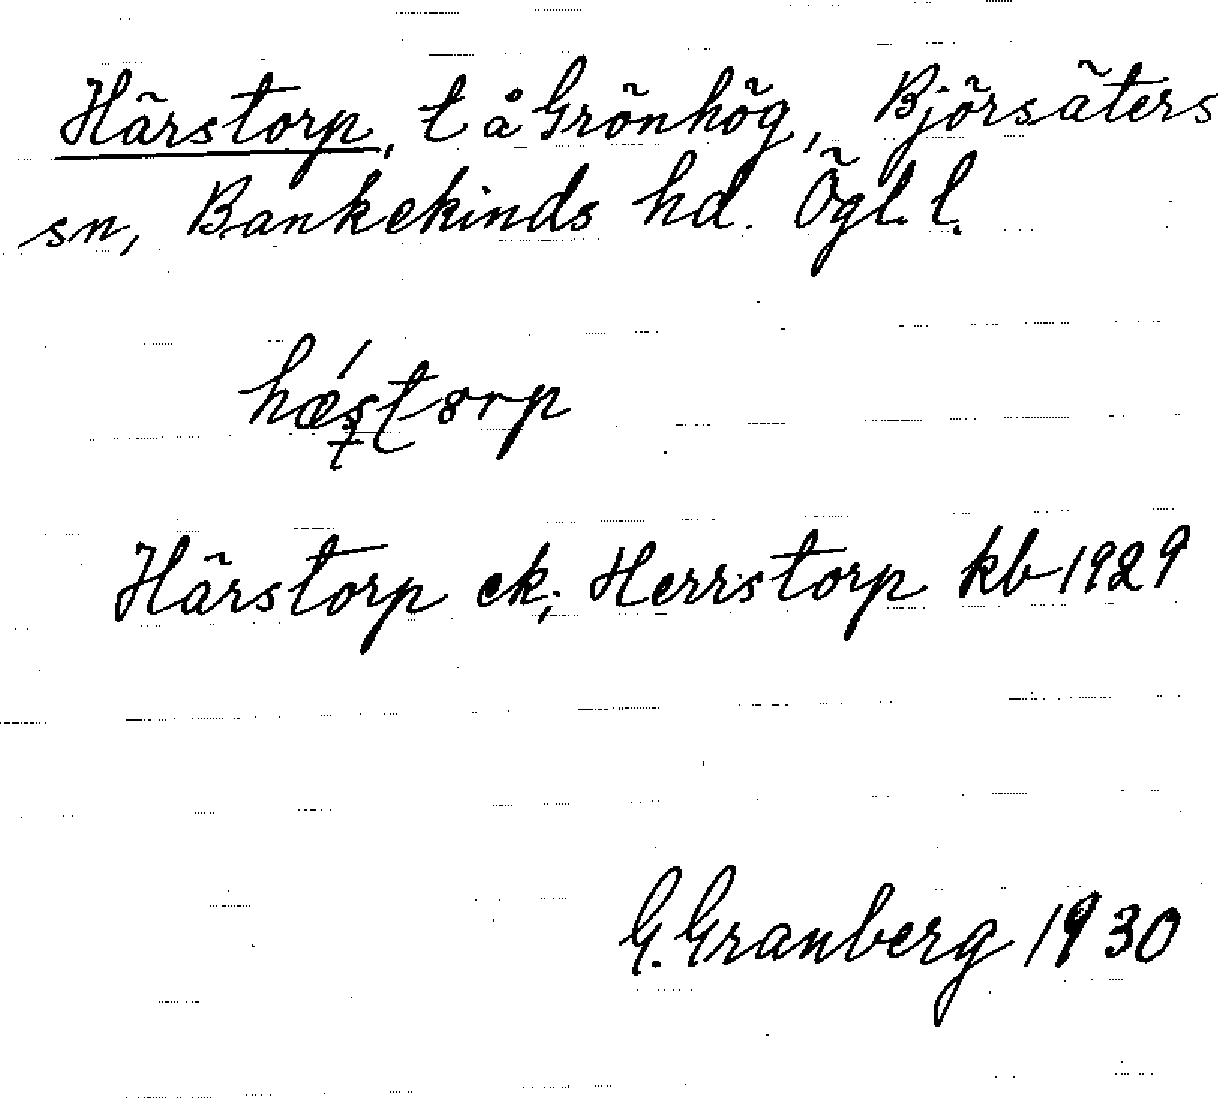 Härstorp, t å Grönhög, Björsäters
sn, Bankekinds hd. Ögl. l.
Härstorp ek; Herrstorp kb 1929
G. Granberg 1930